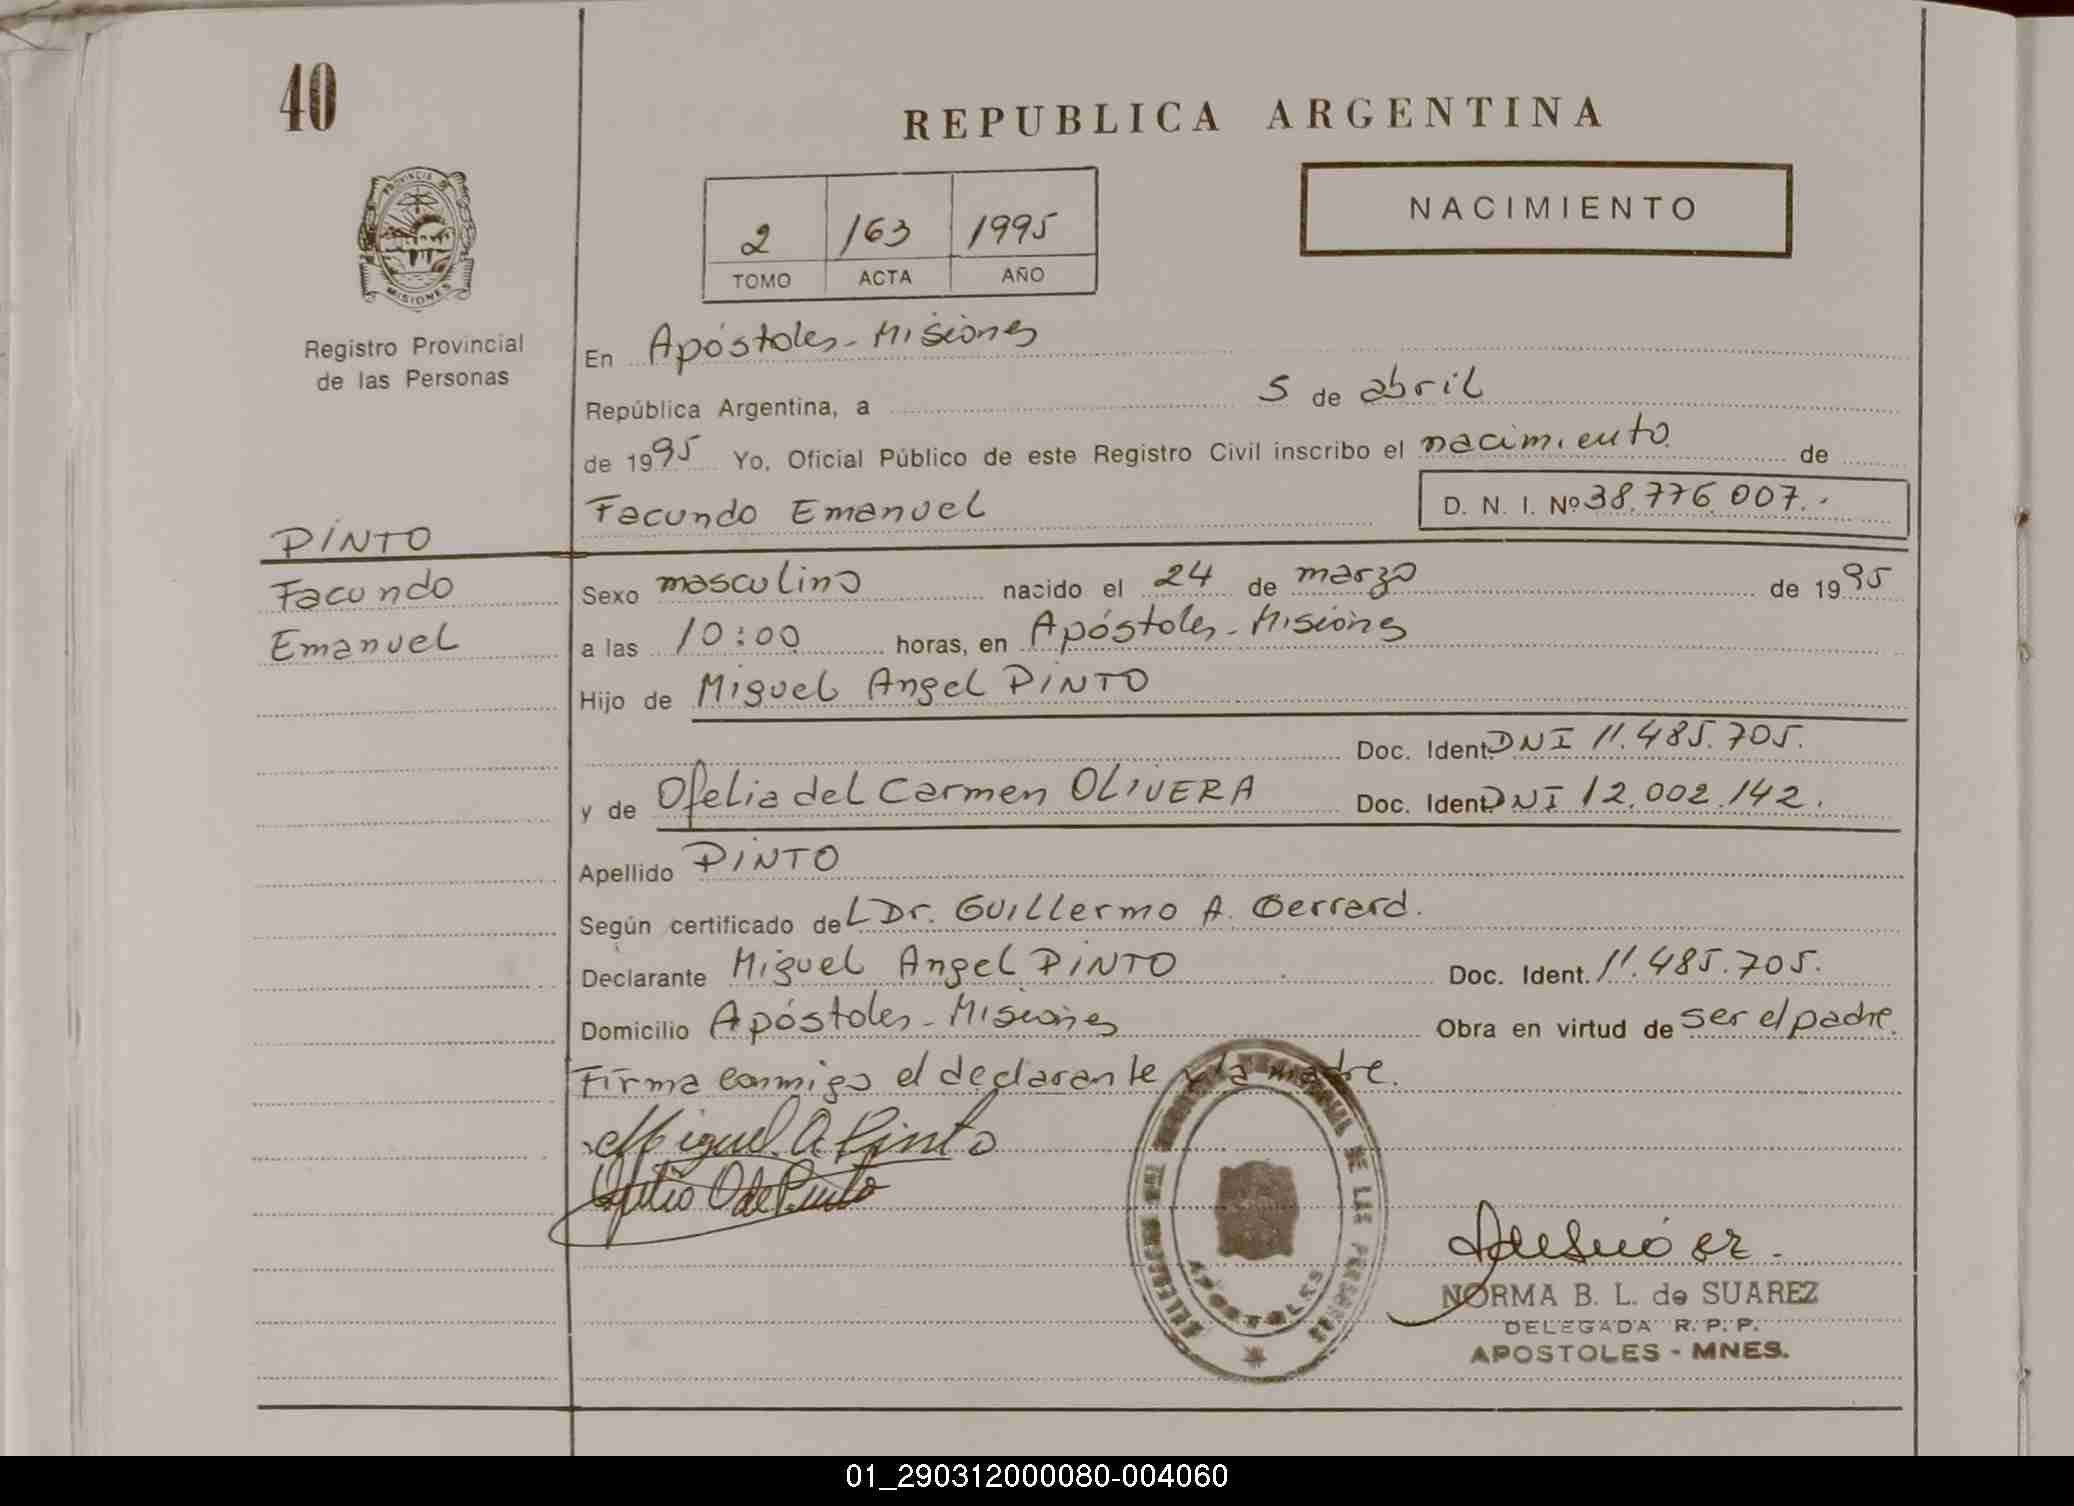 40
REPUBLICA ARGENTINA
PROVINCIA DE
MISIONES
Registro Provincial
de las Personas
2 163 1995
TOMO ACTA AÑO
NACIMIENTO
En Apóstoles - Misiones
República Argentina, a 5 de abril
de 1995 Yo, Oficial Público de este Registro Civil inscribo el nacimiento de
Facundo Emanuel D. N. I. Nº 38.776.007.-
PINTO
Facundo
Emanuel
Sexo masculino nacido el 24 de marzo de 1995
a las 10:00 horas, en Apóstoles - Misiones
Hijo de Miguel Angel PINTO
Doc. Ident. DNI 11.485.705.
y de Ofelia del Carmen OLIVERA Doc. Ident. DNI 12.002.142.
Apellido PINTO
Según certificado del Dr. Guillermo A. Gerrard.
Declarante Miguel Angel PINTO Doc. Ident. 11.485.705.
Domicilio Apóstoles - Misiones Obra en virtud de ser el padre.
Firma conmigo el declarante y la madre.
Miguel A Pinto
Ofelia O de Pinto
DE LAS PERSONAS
APOSTOLES
NORMA B. L. de SUAREZ
DELEGADA R. P. P.
APOSTOLES - MNES.
01_290312000080-004060